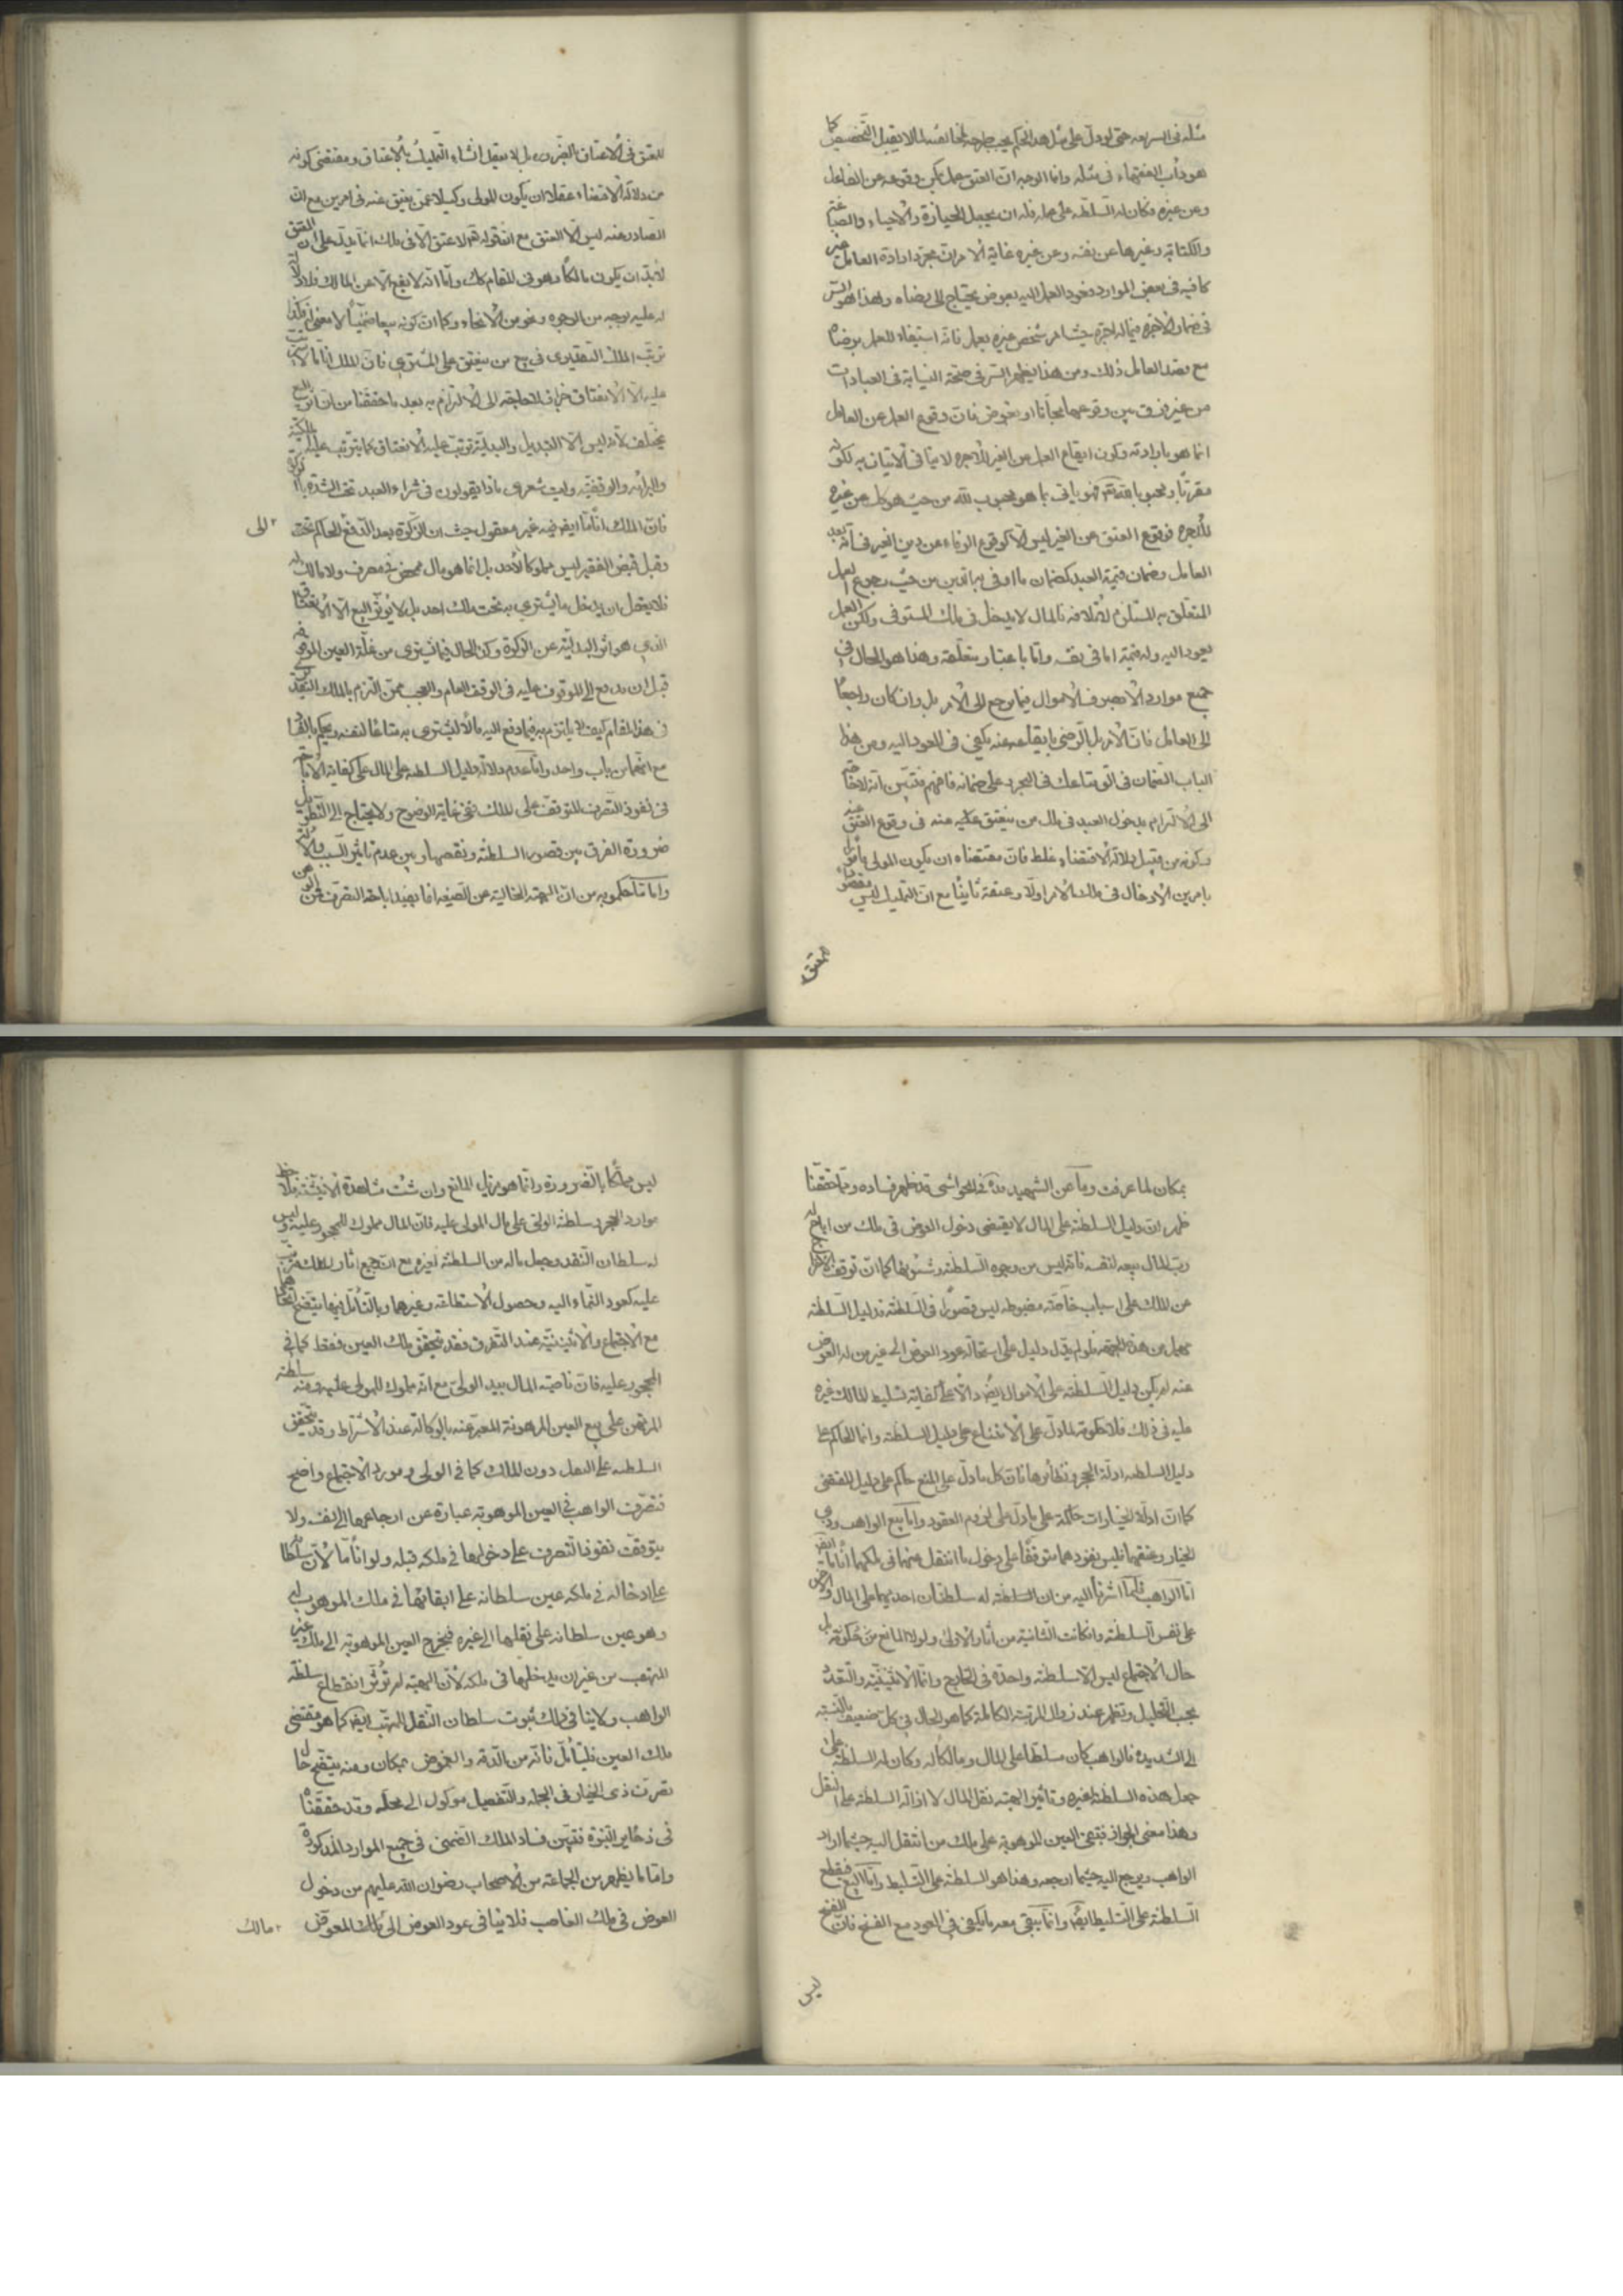 مثله فى الشريعه حتى لو دل على مثل هذا الحكم يجب طرحه لمخالفته لما لا يقبل التخصيص كما
هو دأب الفقهاء فى مثله واما الوجه ان العتق عمل يمكن وقوعه عن الفاعل
وعن غيره وكان له السلطنه على عمله فله ان يجعل الحيازة والاحياء والصياغة
والكتابة وغيرها عن نفسه وعن غيره غاية الامر ان مجرد ارادة العامل غير
كافيه فى بعض الموارد وعود العمل اليه بعوض يحتاج الى رضاه وهذا هو السر
فى ضمان الاجرة فيما له اجرة حيث امر شخص غيره بعمل فانه استيفاء للعمل برضاه
مع قصد العامل ذلك ومن هذا يظهر السر فى صحة النيابة فى العبادات
من غير فرق بين وقوعها مجانا او بعوض فان وقوع العمل عن العامل
انما هو بارادته وكون ايقاع العمل عن الغير للاجره لا ينافى الاتيان به لكونه
مقربا ومحبوبا لله فهو ياتى بما هو محبوب لله من حيث هو كل عن غيره
للاجرة فوقوع العتق عن الغير ليس الا كوقوع الوفاء عن دين الغير فى انه بعد
العامل وضمان قيمة العبد كضمان ما اوفى به الدين من حيث رجوع العمل
المتعلق به المستلزم لاتلافه فالمال لا يدخل فى ملك المستوفى ولكن العمل
يعود اليه وله قيمة اما فى نفسه واما باعتبار متعلقه وهذا هو الحال فى
جميع موارد الامر بصرف الاموال فيما يرجع الى الامر بل وان كان راجعا
الى العامل فان الامر بل الرضى بايقاعه عنه يكفى فى العود اليه ومن هذا
الباب الضمان فى الق متاعك فى البحر وعلى ضمانه فافهم فتبين انه لا حاجة
الى الالتزام بدخول العبد فى ملك من ينعتق عليه منه فى وقوع العتق عنه
وكونه من قبيل دلالة الاقتضاء غلط فان مقتضاه ان يكون المولى مأمورا
بامرين الادخال فى ملك الامر اولا وعتقه ثانيا مع ان التمليك ليس مقصودا
للعتق
للعتق فى الاعتاق بالضرورة بل لا يعقل انشاء التمليك بالاعتاق ومقتضى كونه
من دلالة الاقتضاء عقلا ان يكون المولى وكيلا عمن يعتق عنه فى امرين مع ان
الصادر منه ليس الا العتق مع ان قوله لا عتق الا فى ملك انما يدل على ان المعتق
لابد ان يكون مالكا وهو فى المقام كك واما انه لا يقع الا عن المالك فلا دلالة
له عليه بوجه من الوجوه ونحو من الانحاء وكما ان كونه بيعا ضمنيا لا معنى له فكذا
ترتب الملك التقديرى فى بيع من ينعتق على المشترى فان الملك انا ما لا يترتب
عليه الا الانعتاق فاى حاجة الى الالتزام به بعد ما حققنا من ان اثر البيع
يختلف لانه ليس الا التبديل والبدلية يترتب عليه الانعتاق كما يترتب عليه الملكية
والبرائة والوقفية وليت شعرى ماذا يقولون فى شراء العبد تحت الشدة بالزكوة
فان الملك انا ما ايضا فيه غير معقول حيث ان الزكوة بعد الدفع الى الحاكم تحت
وقبل قبض الفقير ليس مملوكا لاحد بل انما هو مال ممحض فى مصرف ولا مالك له
فلا يعقل ان يدخل ما يشترى به تحت ملك احد بل لا يؤثر البيع الا الانعتاق
الذى هو اثر البدلية عن الزكوة وكذا الحال فيما يشترى من غلة العين الموقوفه
قبل ان يدفع الى الموقوف عليه فى الوقف العام والعجب ممن التزم بالملك التقديرى
فى هذا المقام كيف لا يلتزم به فيما دفع اليه مالا ليشترى به متاعا لنفسه
مع انهما من باب واحد واما عدم دلالة دليل السلطنة على المال على كفاية الاباحة
فى نفوذ التصرف المتوقف على الملك ففى غاية الوضوح ولا يحتاج الى التطويل
ضرورة الفرق بين قصور السلطنة ونقصها وبين عدم تأثير السبب
واما ما حكموا به من ان الهبة الخالية عن الصيغه انما تفيد اباحة التصرف فمن
بمكان لما عرفت وما عن الشهيد ره فى الحواشى قد ظهر فساده ومما حققنا
ظهر ان دليل السلطنة على المال لا يقتضى دخول العوض فى ملك من اباح له
رب المال بيعه لنفسه فانه ليس من وجوه السلطنة وشئونها كما ان توقف
عن الملك على اسباب خاصة مضبوطه ليس قصورا فى السلطنة فدليل السلطنة
مهمل من هذه الجهة فلو لم يدل دليل على استحالة عود العوض الى غير من له العوض
عنه لم يكن دليل السلطنة على الاموال ايضا دالا على كفاية تسليط المالك غيره
عليه فى ذلك فلا حكومة لما دل على الامتناع على دليل السلطنه وانما الحاكم على
دليل السلطنه ادلة الحجر ونظائرها فان كل ما دل على المنع حاكم على دليل المقتضى
كما ان ادلة الخيارات حاكمة على ما دل على لزوم العقود واما بيع الواهب وذى
الخيار وعتقهما فليس نفوذهما متوقفا على دخول ما انتقل عنهما فى ملكهما انا ما
اما الواهب فلما اشرنا اليه من ان السلطنة له سلطنتان احديهما على المال
على نفس السلطنه وان كانت الثانية من آثار الاولى ولولا المانع من
حال الاجتماع ليس الا سلطنة واحدة فى الخارج وانما الاثنينية والتعدد
بحسب التحليل وتظهر عند زوال المرتبة الكاملة كما هو الحال فى كل ضعيف بالنسبة
الى الشديد فالواهب كان مسلطا على المال ومالكا له وكان له السلطنة على
جعل هذه السلطنة لغيره وتأثير الهبة نقل المال لا ازالة السلطنة على النقل
وهذا معنى الجواز فتبقى العين الموهوبة على ملك من انتقل اليه حيثما اراد
الواهب ويرجع اليه حيثما ارجعه وهذا هو السلطنة على التسليط واما البيع فقطع
السلطنة على التسليط ايضا وانما يبقى معه ما يكفى فى العود مع الفسخ فان الفسخ
ليس
ليس مملكا بالضرورة وانما هو مزيل المانع وان شئت مشاهدة الاثنينية فلاحظ
موارد الحجر سلطنة الولى على مال المولى عليه فان المال مملوك للمحجور عليه وليس
له سلطان النقد وجعل ماله من السلطنة لغيره مع ان جميع آثار الملك مترتب
عليه كعود النماء اليه وحصول الاستطاعة وغيرها وبالتأمل فيها يتضح اتحادهما
مع الاجتماع والاثنينية عند التفرق فقد يتحقق ملك العين فقط كما فى
المحجور عليه فان ناصية المال بيد الولى مع انه مملوك للمولى عليه ومنه سلطنة
المرتهن على بيع العين المرهونة المعبر عنه بالوكالة عند الاشتراط وقد يتحقق
السلطنه على النقل دون الملك كما فى الولى ومورد الاجتماع واضح
فتصرف الواهب فى العين الموهوبة عبارة عن ارجاعها الى نفسه ولا
يتوقف نفوذ التصرف على دخولها فى ملكه قبله ولو انا ما لان سلطانه
على ادخاله فى ملكه عين سلطانه على ابقائها فى ملك الموهوب له
وهو عين سلطانه على نقلها الى غيره فيخرج العين الموهوبة الى ملك غير
المتهب من غير ان يدخلها فى ملكه لان الهبة لم تؤثر انقطاع سلطنة
الواهب ولا ينافى ذلك ثبوت سلطان النقل للمتهب ايضا كما هو مقتضى
ملك العين فليتأمل فانه من الدقة والغموض بمكان ومنه يتضح حال
تصرف ذى الخيار فى الجملة والتفصيل موكول الى محله وقد حققناه
فى ذخاير النبوة فتبين فساد الملك الضمنى فى جميع الموارد المذكورة
واما ما يظهر من الجماعة من الاصحاب رضوان الله عليهم من دخول
العوض فى ملك الغاصب فلا ينافى عود العوض الى مالك المعوض